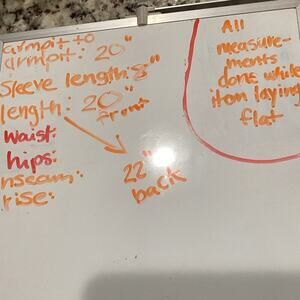 armpit to
armpit: 20"
Sleeve length: 8"
length: 20"
front
waist:
hips:
nseam:
rise:
22"
back
All
measure-
ments
done while
item laying
flat